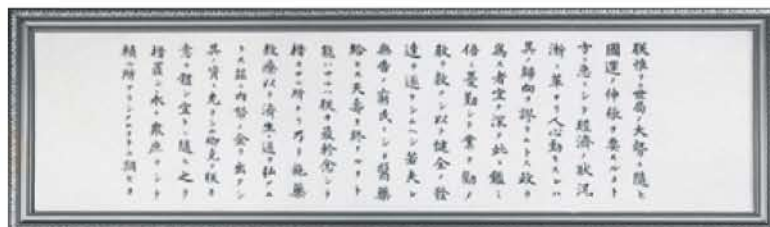 朕惟フニ世局ノ大勢ニ隨ヒ
國運ノ伸張ヲ要スルコト
方ニ急ニシテ經濟ノ狀況
漸ニ革マリ人心動モスレハ
其ノ歸向ヲ謬ラムトス政ヲ
爲ス者宜ク深ク此ニ鑒ミ
倍々憂勤シテ業ヲ勸メ
敎ヲ敦クシ以テ健全ノ發
達ヲ遂ケシムヘシ若夫レ
無告ノ窮民ニシテ醫藥
給セス天壽ヲ終フルコト
能ハサルハ朕カ最軫念シテ
措カサル所ナリ乃チ施藥
救療以テ濟生ノ道ヲ弘メム
トス茲ニ內帑ノ金ヲ出タシ
其ノ資ニ充テシム卿克ク朕カ
意ヲ體シ宜キニ隨ヒ之ヲ
措置シ永ク衆庶ヲシテ
頼ル所アラシメムコトヲ期セヨ